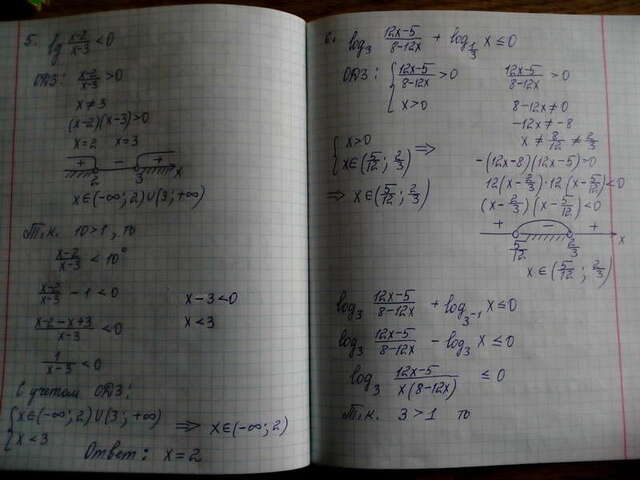 5. lg (x-2)/(x-3) < 0
ОДЗ: (x-2)/(x-3) > 0
x ≠ 3
(x-2)(x-3) > 0
x = 2 x = 3
+ - +
2 3 x
x ∈ (-∞; 2) ∪ (3; +∞)
Т.к. 10 > 1, то
(x-2)/(x-3) < 10⁰
(x-2)/(x-3) - 1 < 0
(x-2-x+3)/(x-3) < 0
1/(x-3) < 0
x - 3 < 0
x < 3
С учетом ОДЗ:
{ x ∈ (-∞; 2) ∪ (3; +∞)
x < 3
⇒ x ∈ (-∞; 2)
Ответ: x = 2
6. log₃ (12x-5)/(8-12x) + log_{1/3} x ≤ 0
ОДЗ: { (12x-5)/(8-12x) > 0
x > 0
(12x-5)/(8-12x) > 0
8 - 12x ≠ 0
-12x ≠ -8
x ≠ 8/12 ≠ 2/3
-(12x-8)(12x-5) > 0
12(x - 2/3) · 12(x - 5/12) < 0
(x - 2/3)(x - 5/12) < 0
+ - +
5/12 2/3 x
x ∈ (5/12; 2/3)
{ x > 0
x ∈ (5/12; 2/3) ⇒
⇒ x ∈ (5/12; 2/3)
log₃ (12x-5)/(8-12x) + log_{3⁻¹} x ≤ 0
log₃ (12x-5)/(8-12x) - log₃ x ≤ 0
log₃ (12x-5)/(x(8-12x)) ≤ 0
Т.к. 3 > 1 то